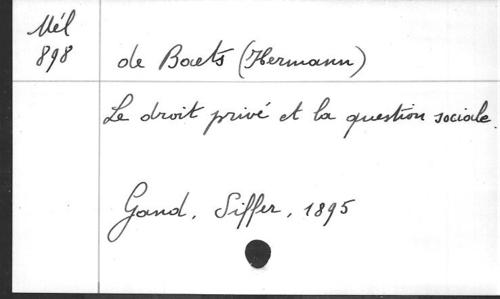 Mél
898
de Baets (Hermann)
Le droit privé et la question sociale.
Gand, Siffer, 1895